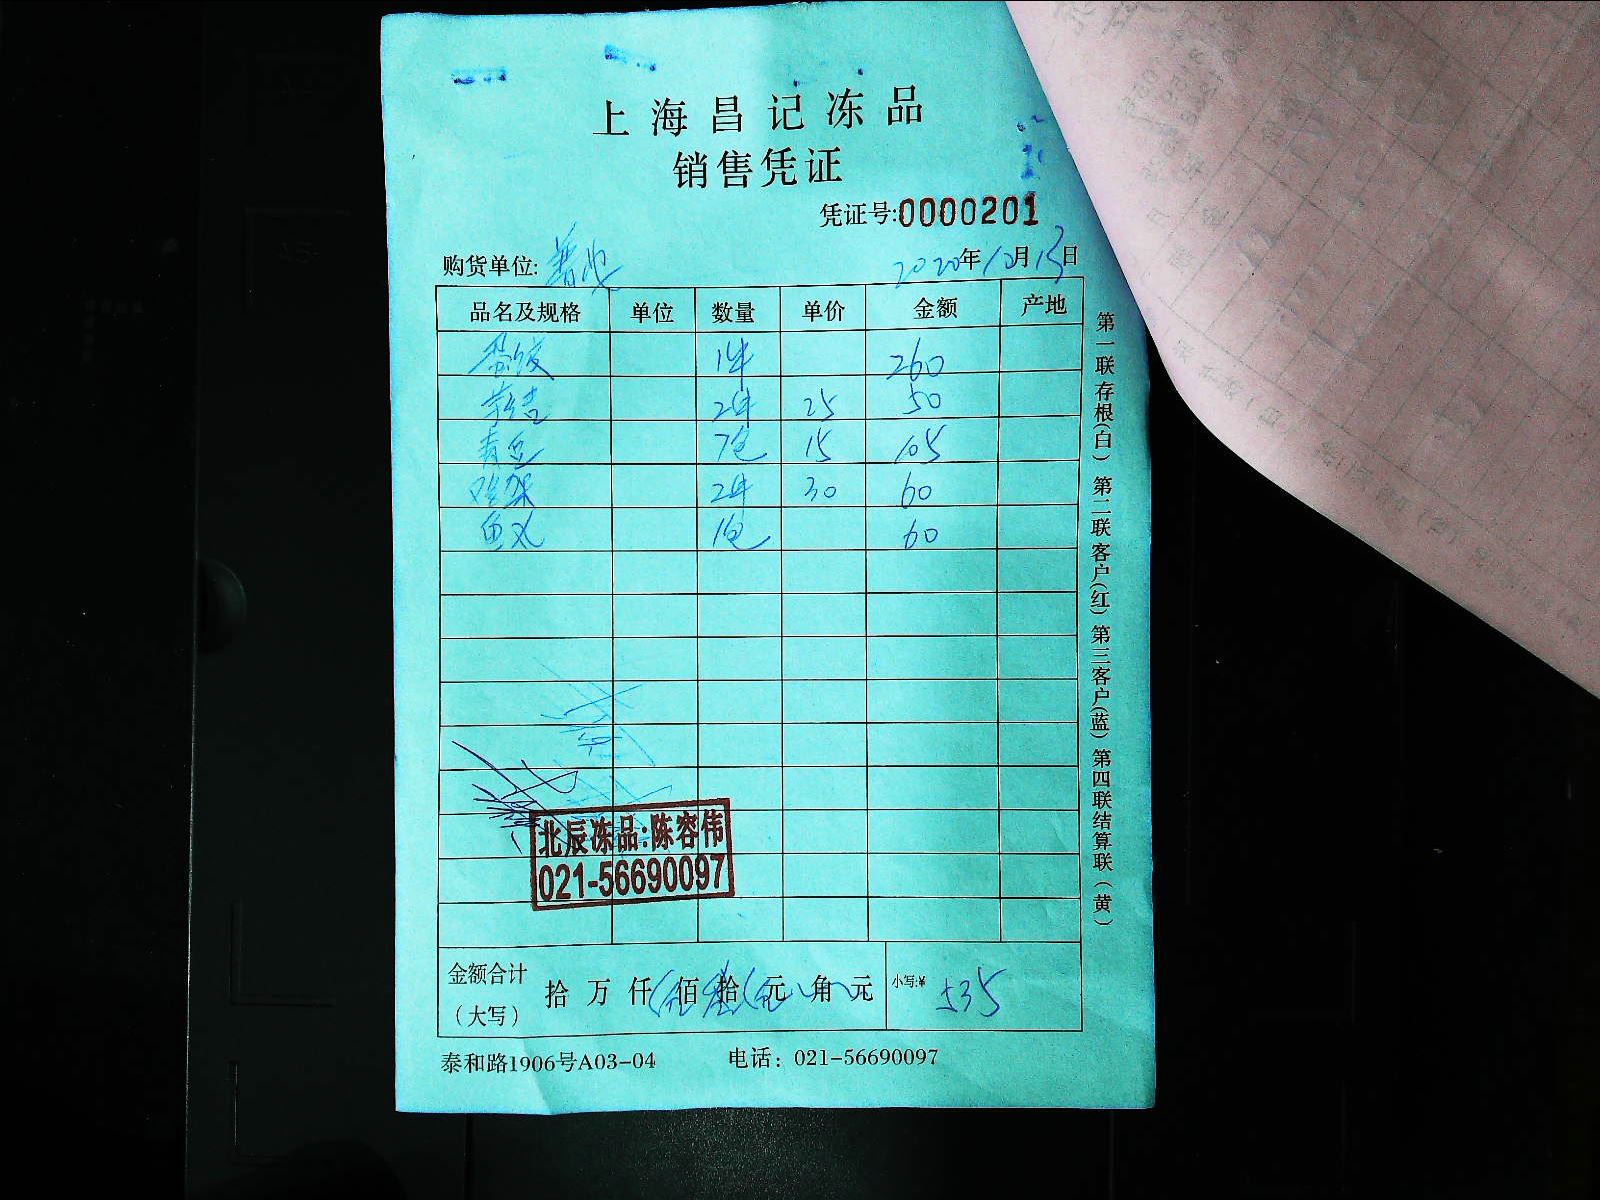 上海昌记冻品
销售凭证
凭证号:0000201
购货单位: 普也 2020年10月13日
品名及规格 单位 数量 单价 金额 产地
蛋饺 1件 260
2件 25 50
青豆 7包 15 105
鸡架 2件 30 60
鱼丸 1包 60
北辰冻品:陈容伟
021-56690097
金额合计(大写) 拾 万 仟 伍 佰 叁 拾 伍 元 角 元 小写:¥ 535
泰和路1906号A03-04 电话: 021-56690097
第一联存根(白) 第二联客户(红) 第三客户(蓝) 第四联结算联(黄)